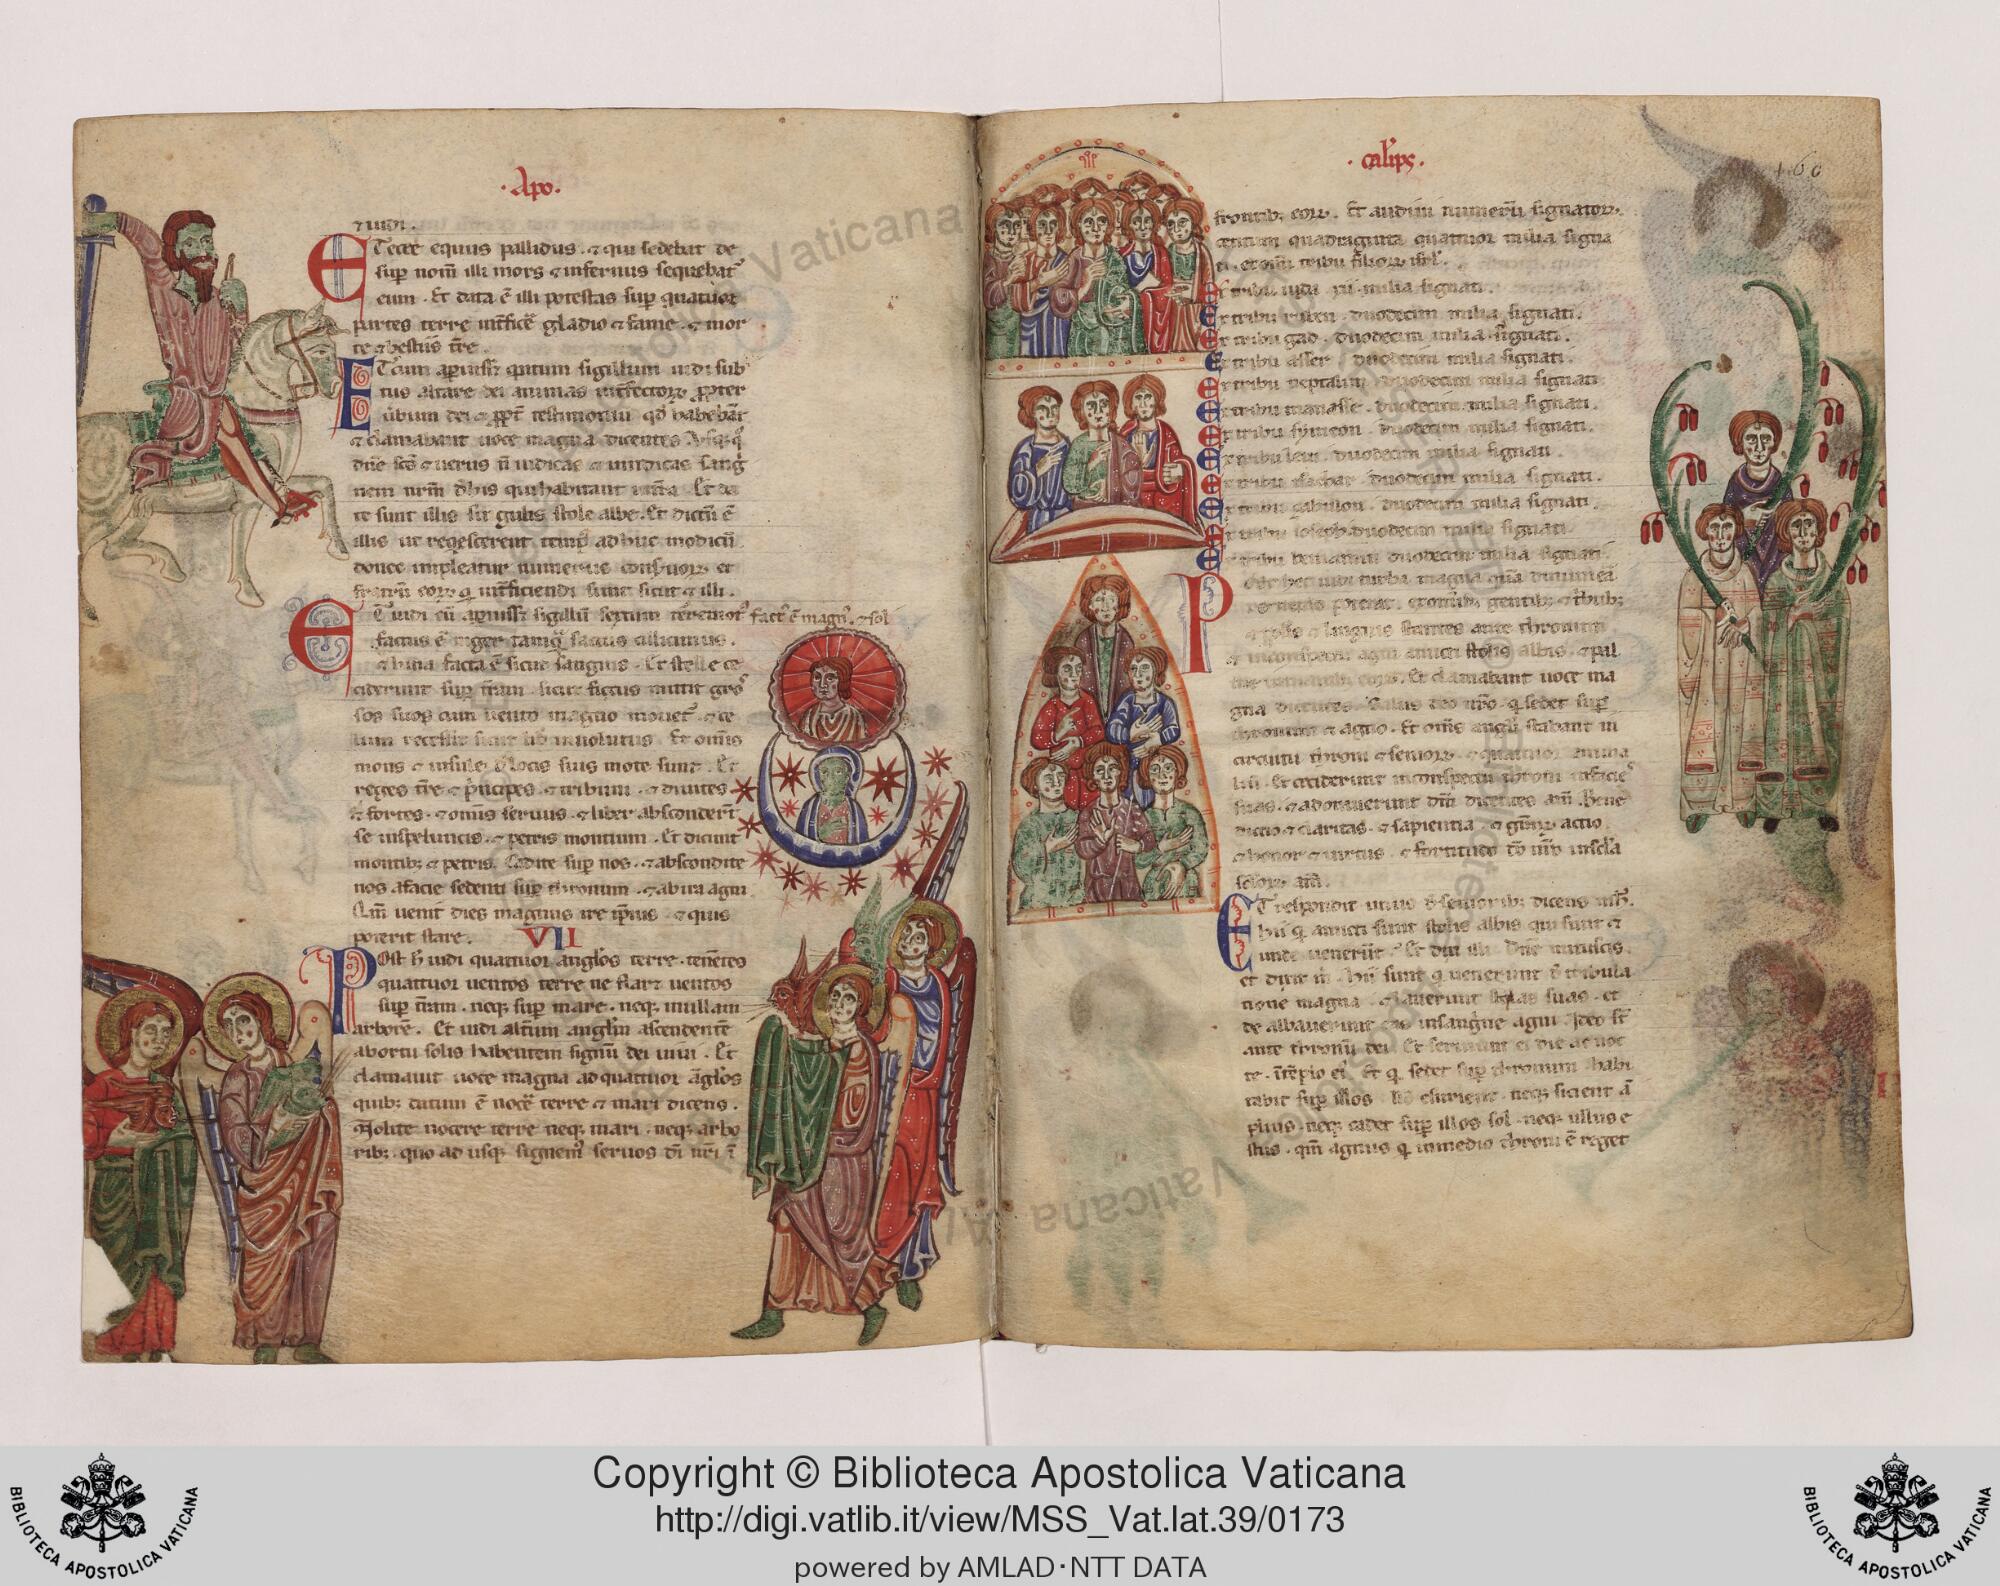 · Apo ·
⁊ uidi .
ET ecce equus pallidus . ⁊ qui sedebat de
sup nom̄ illi mors ⁊ infernus sequebat᷑
eum . Et data ē illi potestas sup quatuor
partes terre int̄ficē gladio ⁊ fame . ⁊ mor
te ⁊ bestiis t̄re .
ET cum apuiss& quintum sigillum uidi sub
tus altare dei animas int̄fectoꝝ ꝓpter
ūbum dei ⁊ ꝓpt̄ testimoniū qđ habebāt
⁊ clamabant uoce magna dicentes
dn̄e scs̄ ⁊ uerus n̄ iudicas ⁊ uindicas sang
nem nrm̄ đ his qui habitant
te sunt illis singulis stole albe . Et dictū ē
illis ut reqescerent temp᷒ adhuc modicū
donec impleatur numerus conseruoꝝ et
fratrū eoꝝ q int̄ficiendi sunt sicut ⁊ illi .
ET uidi cū apuiss& sigillū sextum terremot᷒ fact᷒ ē magn᷒ . ⁊ sol
factus ē niger tamq̄ saccus cilicinus .
⁊ luna facta ē sicut sanguis . Et stelle ce
ciderunt sup t̄ram . sicut ficus mittit gros
sos suos cum uento magno mouet᷑ . ⁊ ce
lum recessit sicut lib inuolutus . Et om̄is
mons ⁊ insule đ locis suis mote sunt . Et
reges t̄re ⁊ p̄ncipes . ⁊ tribuni . ⁊ diuites
⁊ fortes . ⁊ om̄is seruus . ⁊ liber absconderūt
se inspeluncis . ⁊ petris montium . Et dicunt
montib; ⁊ petris . Cadite sup nos . ⁊ abscondite
nos afacie sedenti sup thronum . ⁊ ab ira agni
Qm̄ uenit dies magnus ire ip̄ius . ⁊ quis
poterit stare . VII
POst h̄ uidi quattuor angłos terre . tenētes
quattuor uentos terre ne flar& uentos
sup t̄ram . neq; sup mare . neq; inullam
arborē . Et uidi alt̄um angłm ascendentē
abortu solis habentem signū dei uiui . Et
clamauit uoce magna ad quattuor āgłos
quib; datum ē nocē terre ⁊ mari dicens .
Nolite nocere terre neq; mari . neq; arbo
rib; . quo ad usq; signem᷒ seruos di nr̄i ī
· calips ·
160
frontib; eoꝝ . Et audiui numerū signatoꝝ
centum quadraginta quattuor milia signa
ti . ex om̄i tribu filioꝝ isrł .
Ex tribu iuda . xii . milia signati .
Ex tribu ruben . duodecim milia signati .
Ex tribu gad . duodecim milia signati .
Ex tribu asser duodecim milia signati .
Ex tribu neptalim duodecim milia signati
Ex tribu manasse . duodecim milia signati .
Ex tribu symeon . duodecim milia signati .
Ex tribu leui . duodecim milia signati .
Ex tribu isachar . duodecim milia signati .
Ex tribu zabullon . duodecim milia signati .
Ex tribu ioseph . duodecim milia signati
Ex tribu beniamin duodecim milia signati .
Post hec uidi turbā magnā quā dinumerā
re nemo poterat . exomīb; gentib; ⁊ tribub;
⁊ popłis ⁊ linguis stantes ante thronum
⁊ inconspectu agni amicti stolis albis . ⁊ pal
me inmanib; eoꝝ . Et clamabant uoce ma
gna dicentes . Salus deo nr̄o . q sedet sup
thronum ⁊ agno . Et om̄s angłi stabant in
circuitu throni ⁊ senioꝝ . ⁊ quattuor anima
liū . Et ceciderunt inconspectu throni infacies
suas . ⁊ adorauerunt dm̄ dicentes am̄ . Bene
dictio ⁊ claritas . ⁊ sapientia . ⁊ graꝝ actio
⁊ honor ⁊ uirtus . ⁊ fortitudo đo nr̄o inscła
scłoꝝ am̄ .
ET respondit unus đ seniorib; dicens mͥ .
hii q amicti sunt stolis albis qui sunt ⁊
unde uenerūt . Et dixi illi . Dn̄e mi tu scis .
et dixit m̄ . Hii sunt q uenerunt đ tribula
tione magna . ⁊ lauerunt stolas suas . et
de albauerunt eas insangine agni . Ideo st̄
ante thronū dei . Et seruiunt ei die ac noc
te . īteplo ei᷒ . Et q sedet sup thronum habi
tabit sup illos . Nō esurient . neq; sicient ā
plius . neq; cadet sup illos sol . neq; ullus e
stus . qm̄ agnus q inmedio throni ē reget
Copyright © Biblioteca Apostolica Vaticana
http://digi.vatlib.it/view/MSS_Vat.lat.39/0173
powered by AMLAD·NTT DATA
BIBLIOTECA APOSTOLICA VATICANA
BIBLIOTECA APOSTOLICA VATICANA